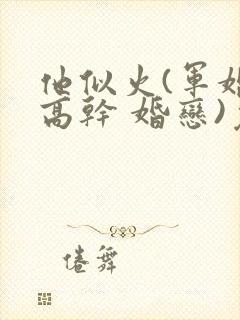 他似火(軍婚
高幹 婚戀)
倦舞